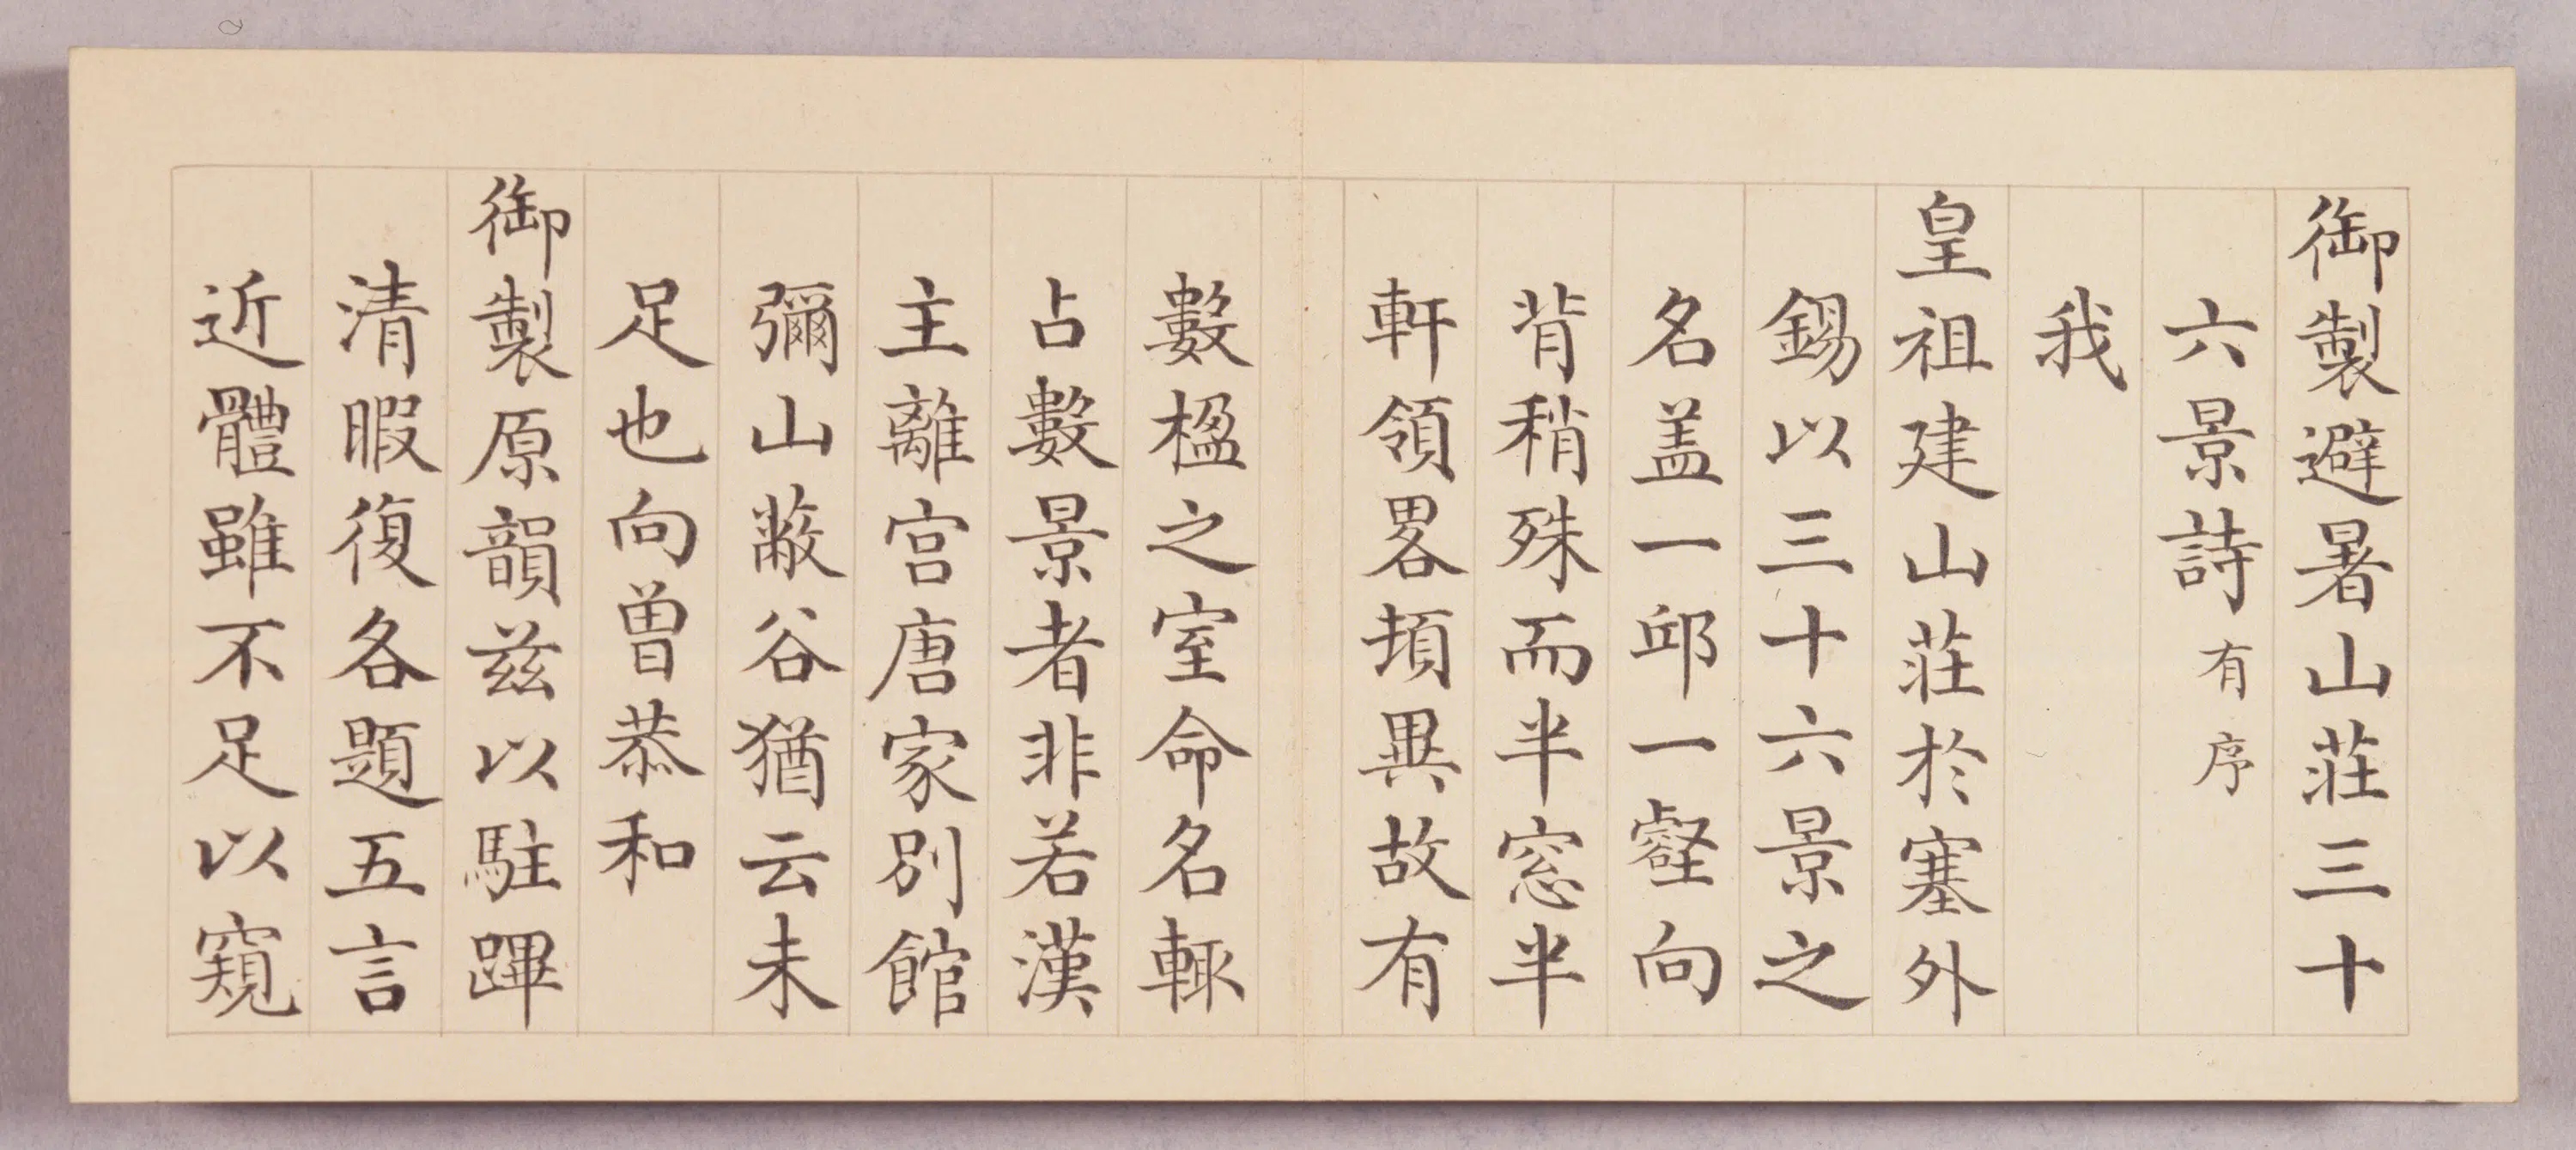 御製避暑山莊三十
六景詩有序
我
皇祖建山莊於塞外
錫以三十六景之
名盖一邱一壑向
背稍殊而半窓半
軒領畧頓異故有
數楹之室命名輙
占數景者非若漢
主離宮唐家別館
彌山蔽谷猶云未
足也向曾恭和
御製原韻兹以駐蹕
清暇復各題五言
近體雖不足以窺